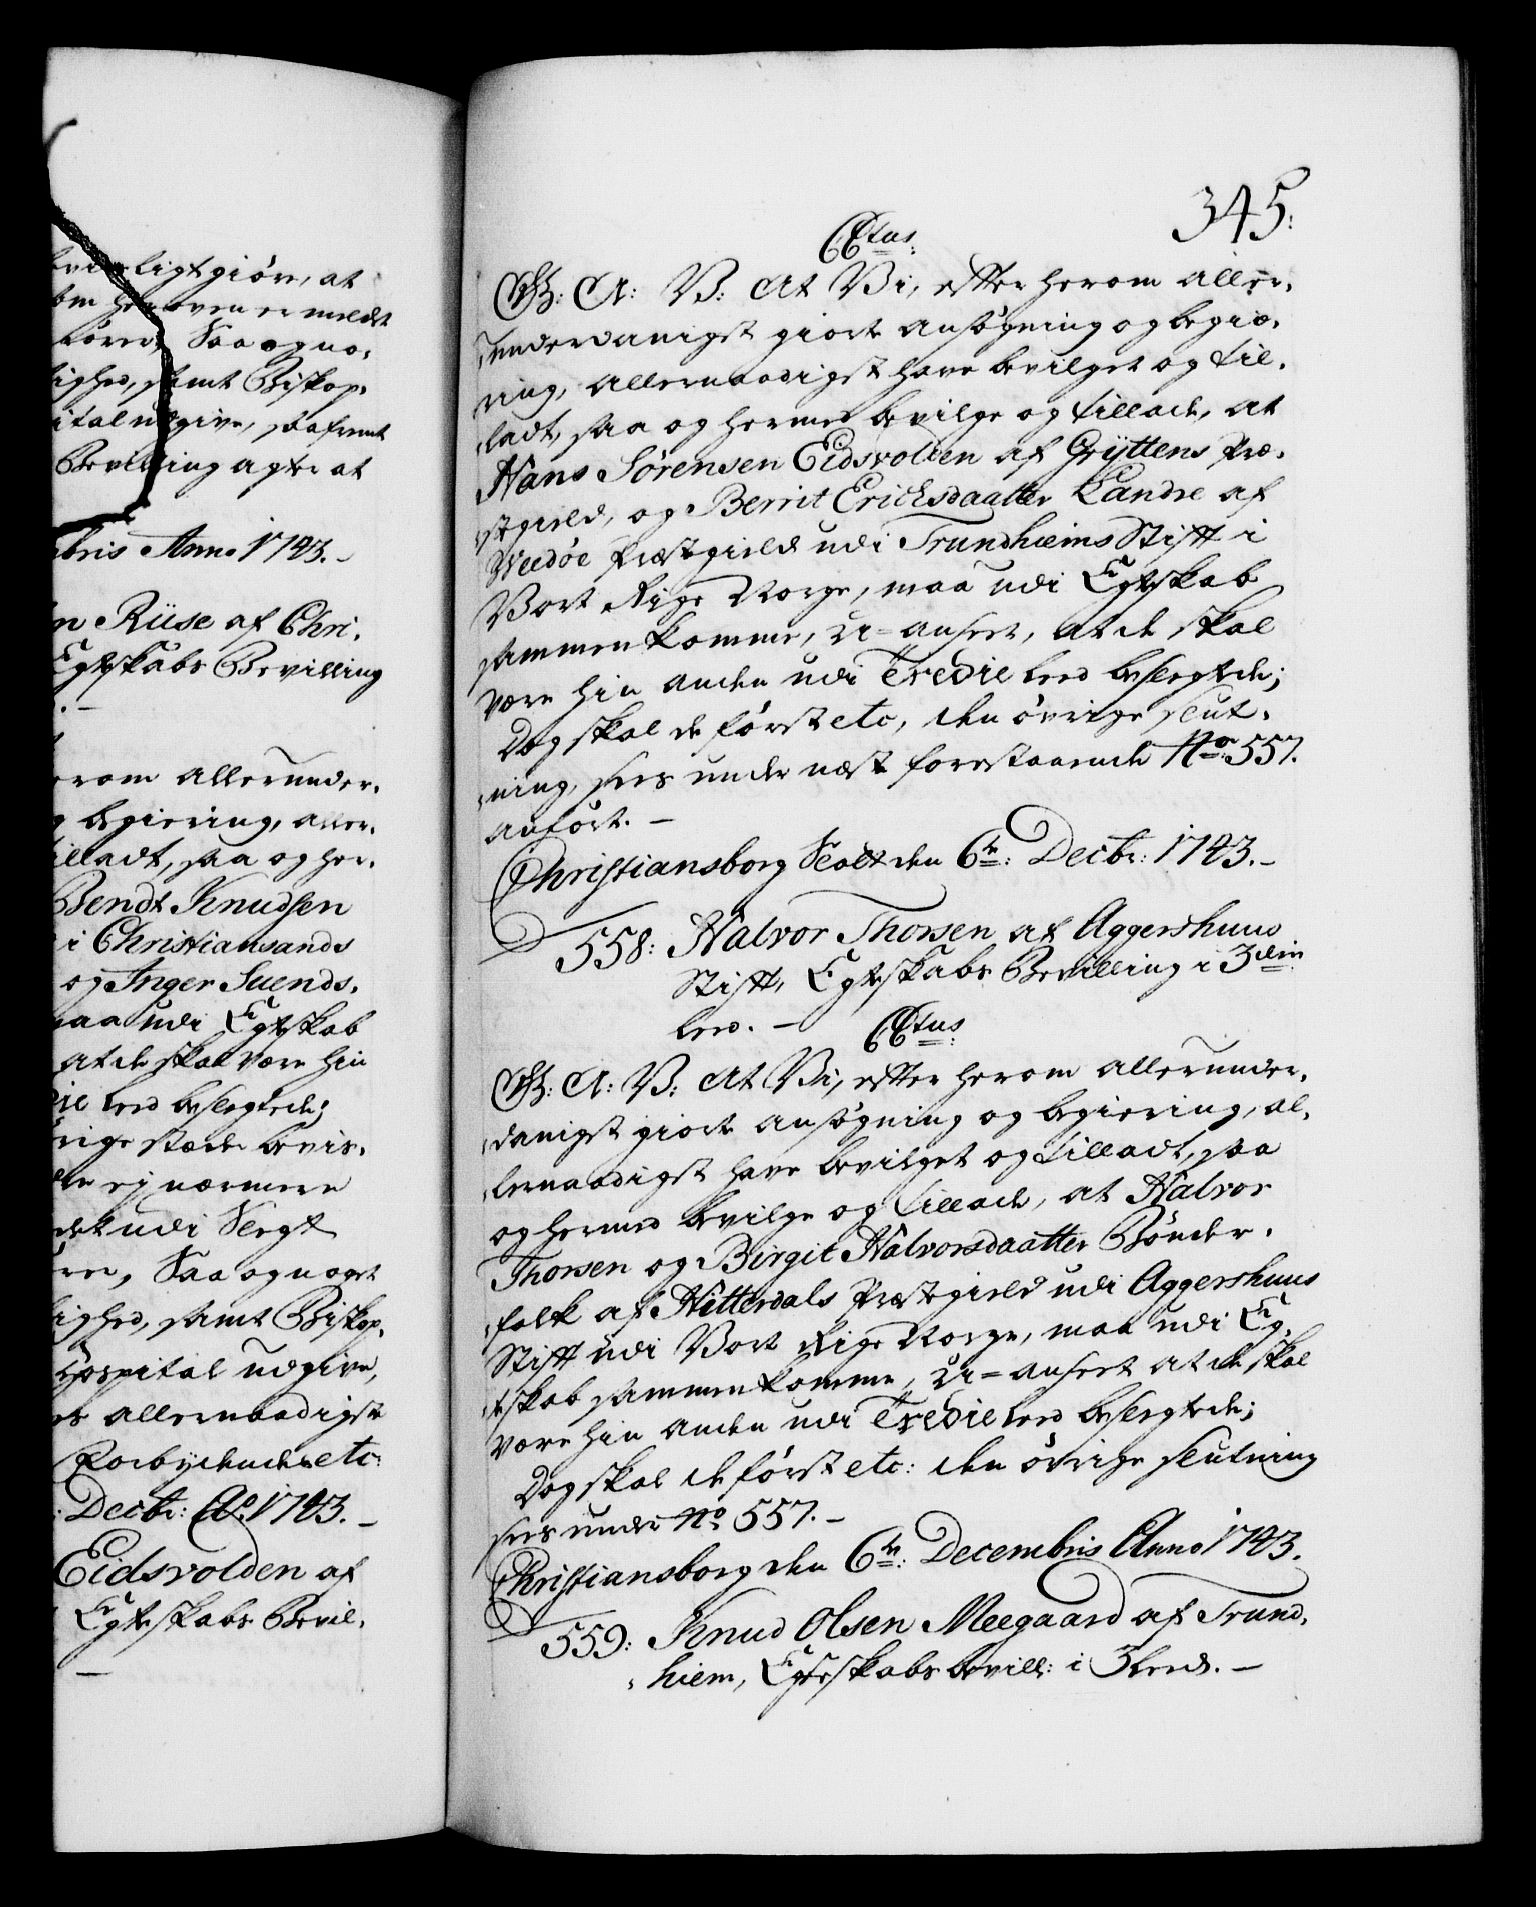 ligt giøre, at
her oven ermeldt
Saa og no-
lighed, samt Biskop-
ital udgive, saafremt
Bevilling agter at
bris Anno 1743.-
n Riise af Chri-
Egteskabs Bevilling
erom allerunder-
og begiering, aller-
illadt, saa og her-
Bendt Knudsen
i Christiansands
og Inger Suends-
maa udi Egteskab
at de skal være hin
die leed beslegtede;
rige stæder bevis-
ej nærmere
udi Slegt
Saa og noget
lighed, samt Biskop-
Hospital udgive,
allernaadigst
Forbydendes etc:
Decbr: Ao 1743.-
Eidsvolden af
Egteskabs Bevil-
345:
CCtus:
G: A: V: At Vi, efter herom aller-
underdanigst giorte ansøgning og begiæ-
ring, allernaadigst have bevilget og til-
ladt, saa og hermed bevilge og tillade, at
Hans Sørensen Eidsvolden af Gryttens Præ-
stegield, og Berrit Erichsdaatter Landre af
Weedøe Præstegield udi Trundhiems Stift i
Vort Rige Norge, maa udi Egteskab
sammenkomme, U-anseet, at de skal
være hin anden udi Tredie leed beslegtede;
Dog skal de først etc, den øvrige slut-
ning, sees under næst forestaaende No: 557.
anført.-
Christiansborg Slott den 6te: Decbr: 1743.-
558: Halvor Thorsen af Aggershuus
Stift, Egteskabs Bevilling i 3die
leed.- CCtus:
G: A: V: At Vi, efter herom allerunder-
danigst giorte ansøgning og begiering, al-
lernaadigst have bevilget og tilladt, saa
og hermed bevilge og tillade, at Halvor
Thorsen og Birgit Halvorsdaatter Bønder-
folk af Hitterdals Præstegield udi Aggershuus
Stift udi Vort Rige Norge, maa udi Eg-
teskab sammenkomme, U-anseet at de skal
være hin anden udi Tredie leed beslegtede;
Dog skal de først etc: den øvrige slutning
sees under No 557.-
Christiansborg den 6te: Decembris Anno 1743.
559: Knud Olsen Meegaard af Trund-
hiem, Egteskabs bevill: i 3 leed.-